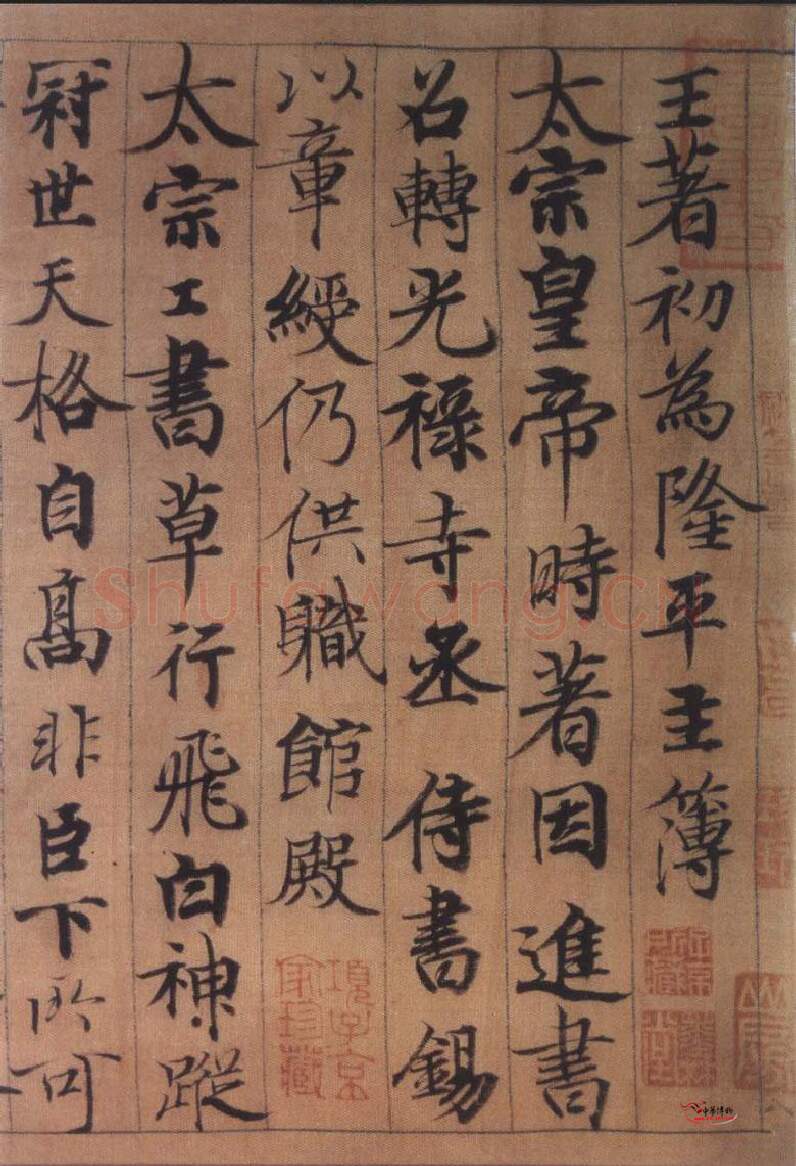 王著初為隆平主簿
太宗皇帝時著因進書
召轉光祿寺丞侍書錫
以章綬仍供職館殿
太宗工書草行飛白神蹤
冠世天格自高非臣下所可
項子京
家珍藏
Shufawang.cn